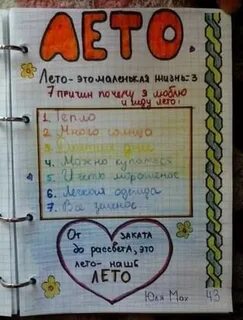 ЛЕТО.
Лето-это маленькая жизнь:3
7 причин почему я люблю
и жду лето:
1. Тепло
2. Много солнца
3. Длинные дни
4. Можно купаться
5. И есть мороженое
6. Легкая одежда
7. Все зеленое
От заката
до рассвета, это
лето-наше
ЛЕТО
Юля Мах
43